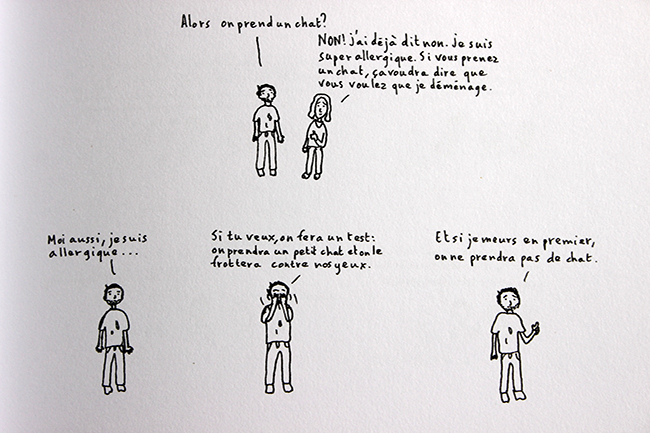 Alors on prend un chat?
NON! j'ai déjà dit non. Je suis
super allergique. Si vous prenez
un chat, ça voudra dire que
vous voulez que je déménage.
Moi aussi, je suis
allergique...
Si tu veux, on fera un test:
on prendra un petit chat et on le
frottera contre nos yeux.
Et si je meurs en premier,
on ne prendra pas de chat.